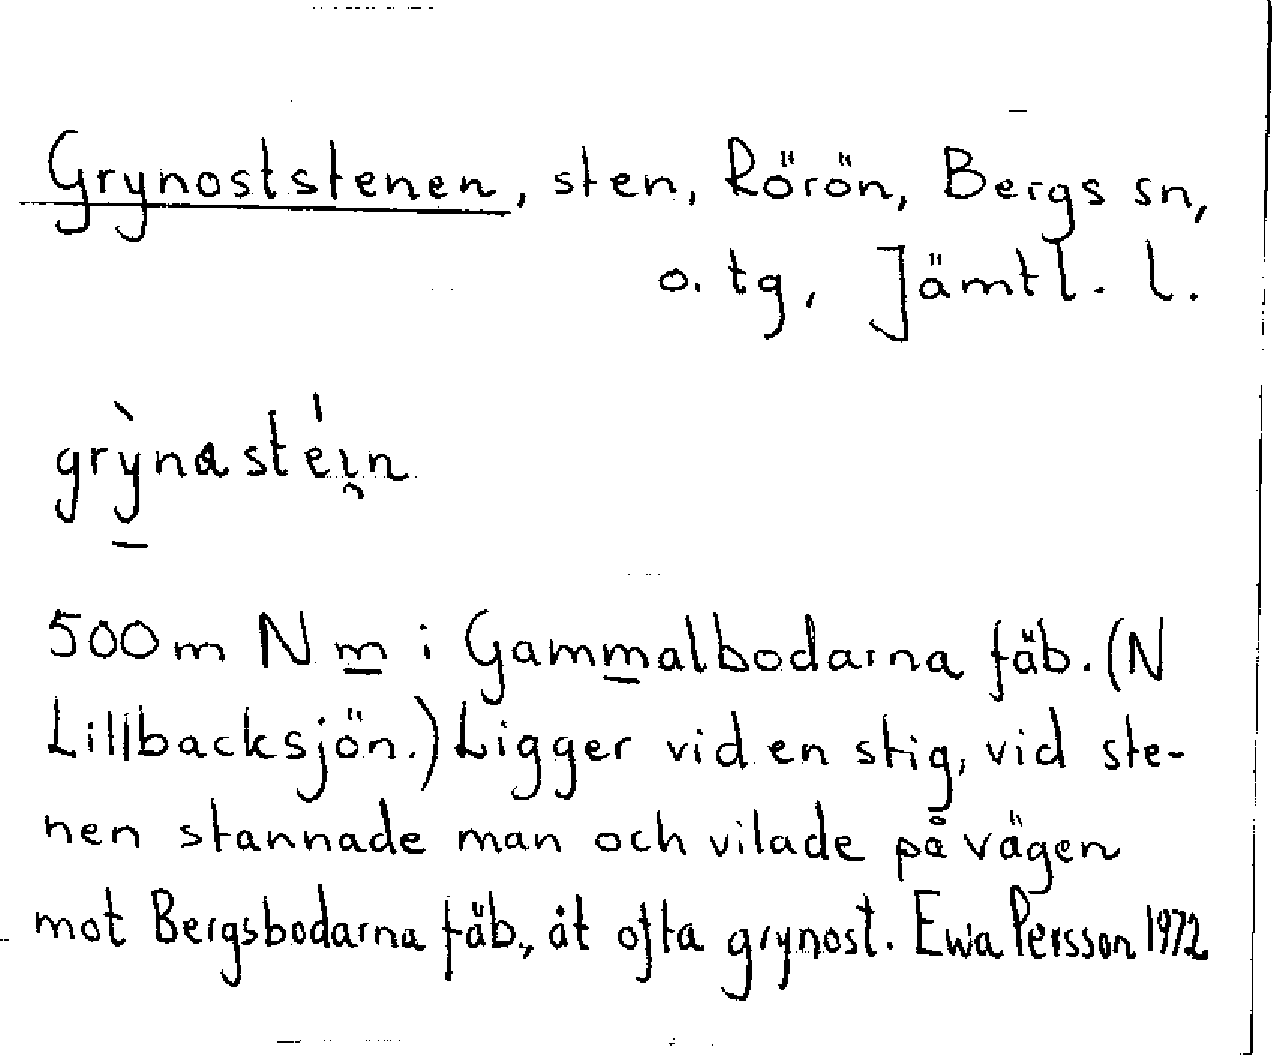 Grynoststenen, sten, Rörön, Bergs sn,
o. tg, Jämtl. l.
grỳnastéi̯n
500 m N m i Gammalbodarna fäb. (N
Lillbacksjön.) Ligger vid en stig, vid ste-
nen stannade man och vilade på vägen
mot Bergsbodarna fäb., åt ofta grynost. Ewa Persson 1972